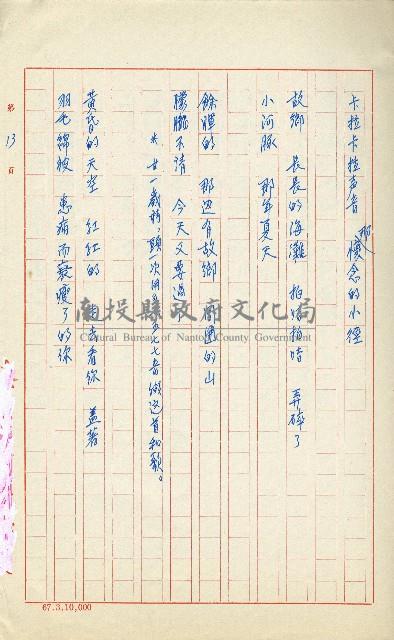 卡拉卡拉声音 那懷念的小徑
故鄉 長長的海灘 拍 拍時 弄碎了
小河豚 那年夏天
餘燼的 那边有故鄉 的山
朦朧不清 今天又要過
※廿一歲時,頭一次用 七七音做这首和歌。
黃昏的天空 紅紅的 去看你 盖著
羽毛綿被 患病而衰瘦了的你
第 13 頁
南投縣政府文化局
Cultural Bureau of Nantou County Government
67.3.10,000